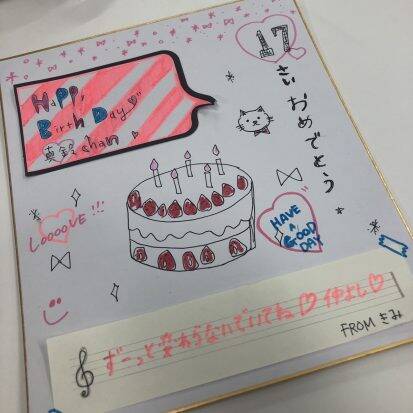 17
さい おめでとう
Happy
BirthDay
真鈴chan
LOOOOVE!!!
HAVE
A
GOOD
DAY
ずーっと変わらないでいてね♡ 仲よし♡
FROM きみ